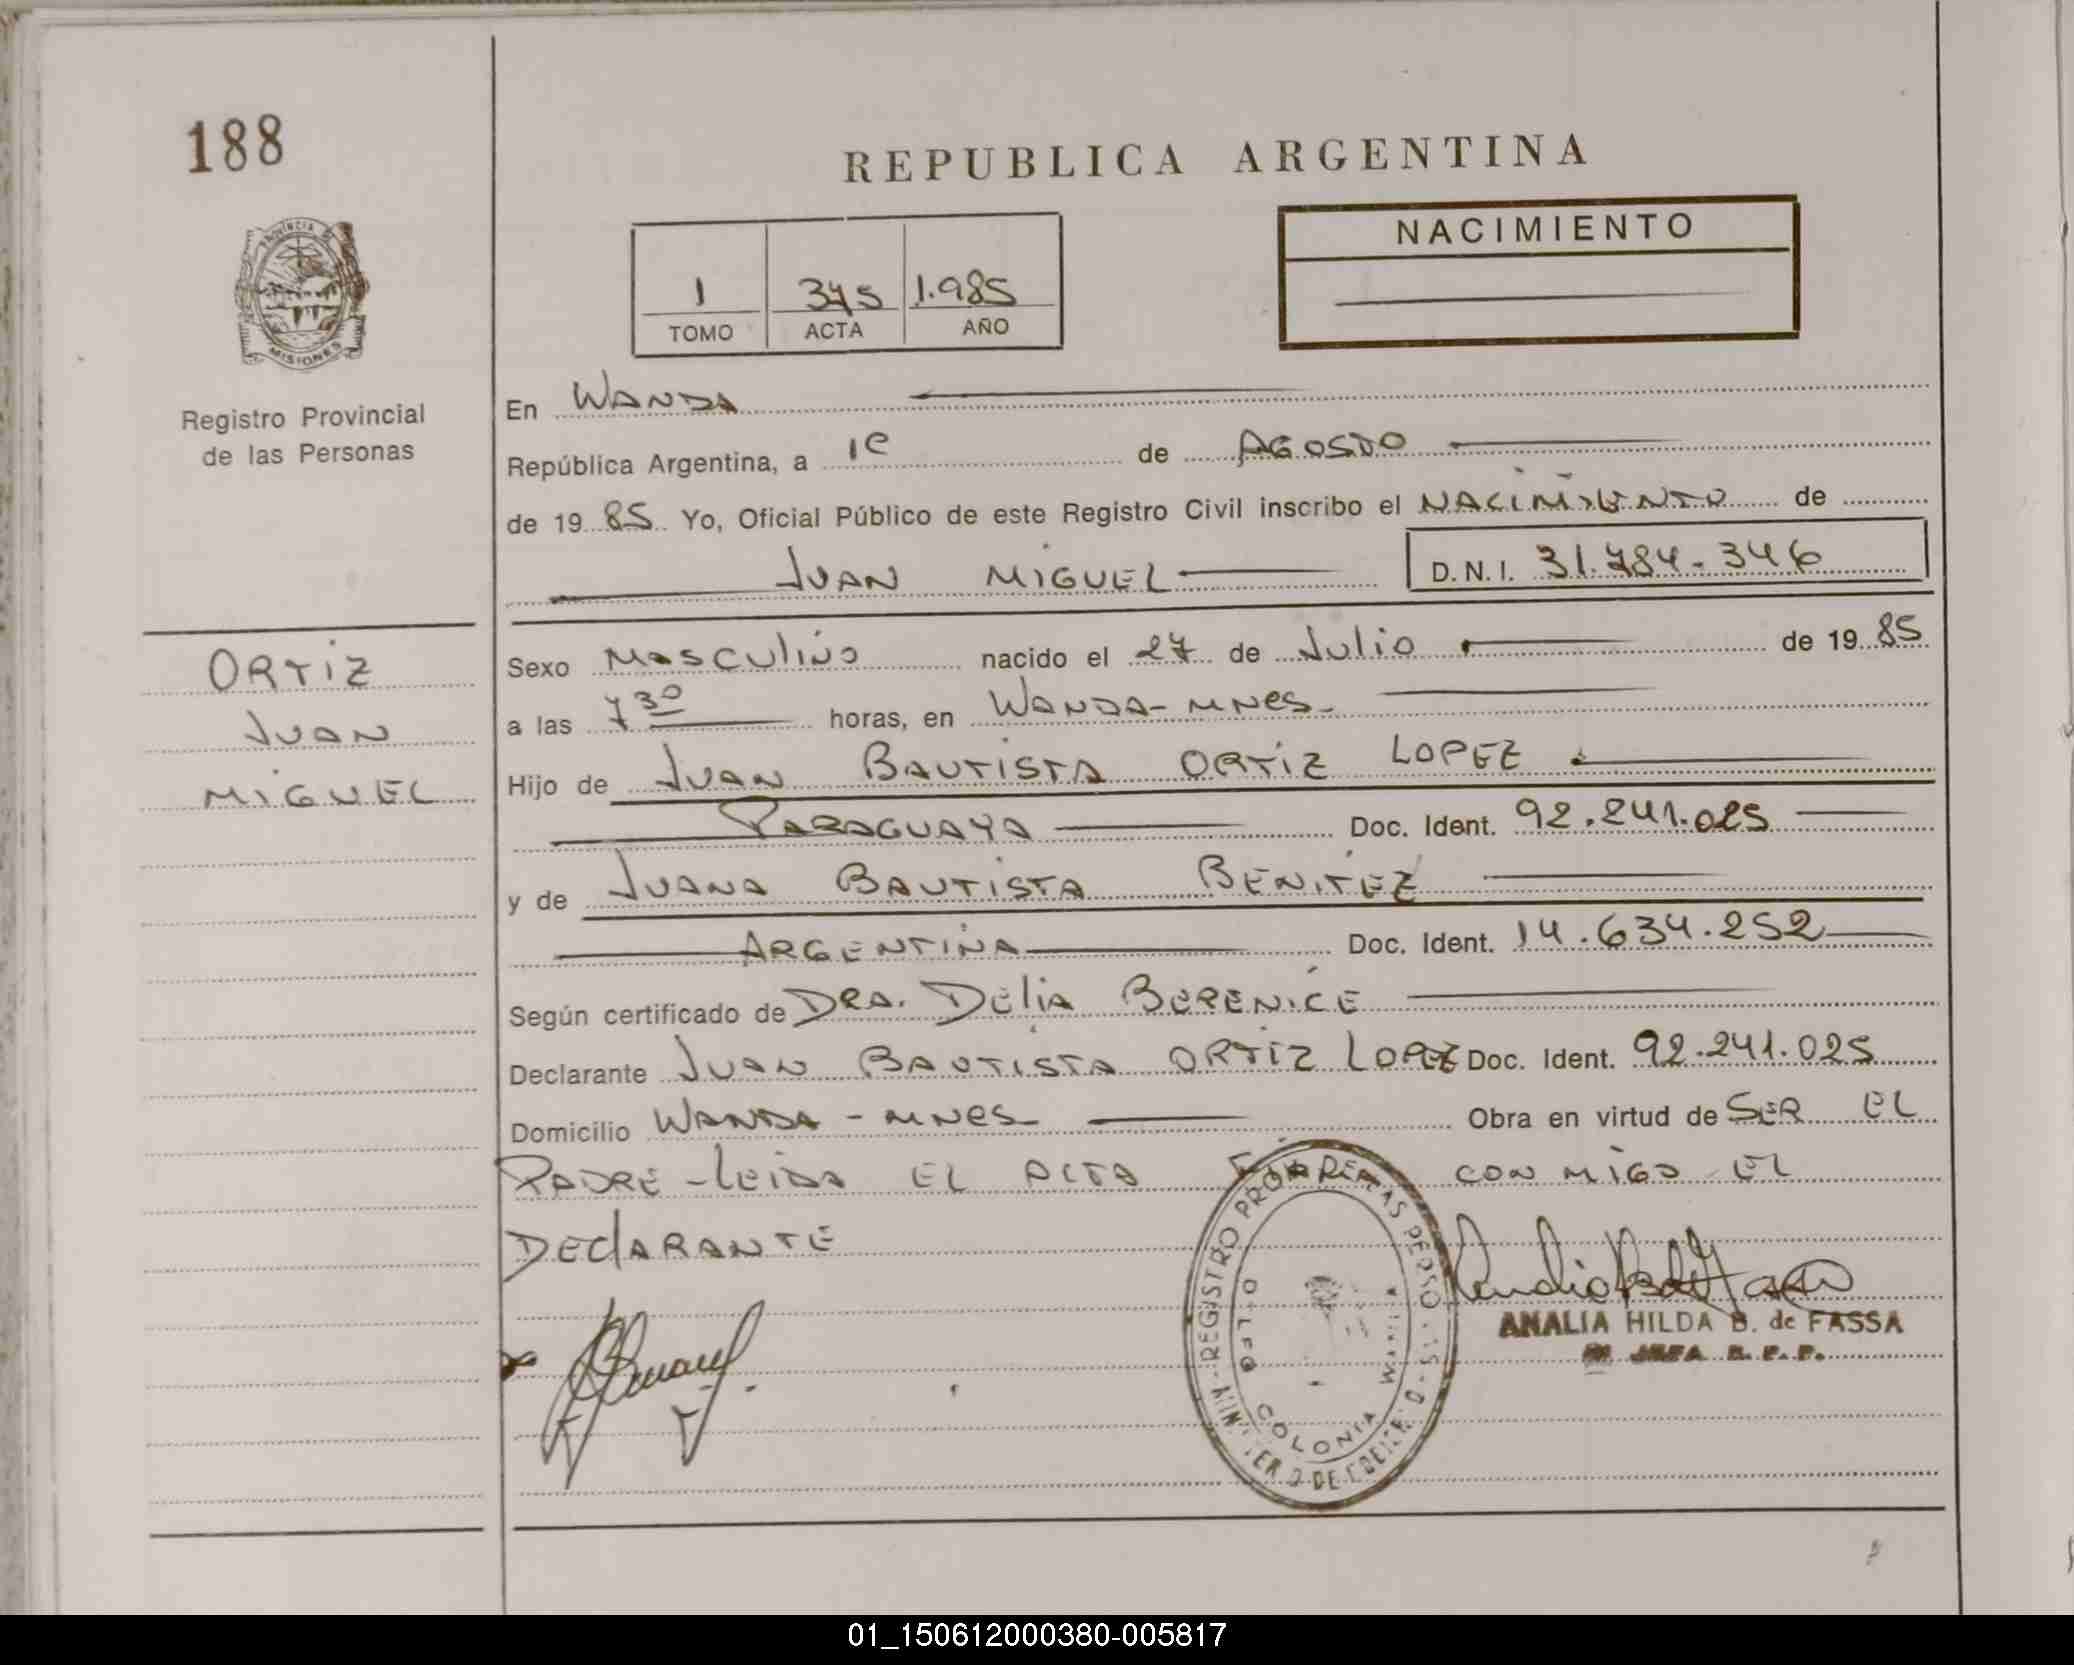 188
REPUBLICA ARGENTINA
NACIMIENTO
1 345 1.985
TOMO ACTA AÑO
PROVINCIA DE
MISIONES
Registro Provincial
de las Personas
En WANDA
República Argentina, a 1º de AGOSTO
de 19 85 Yo, Oficial Público de este Registro Civil inscribo el NACIMIENTO de
JUAN MIGUEL D.N.I. 31.784.346
ORTIZ
JUAN
MIGUEL
Sexo MASCULINO nacido el 27 de Julio de 19 85
a las 7 30 horas, en WANDA - MNES.
Hijo de JUAN BAUTISTA ORTIZ LOPEZ
PARAGUAYA Doc. Ident. 92.241.025
y de JUANA BAUTISTA BENITEZ
ARGENTINA Doc. Ident. 14.634.252
Según certificado de DRA. DELIA BERENICE
Declarante JUAN BAUTISTA ORTIZ LOPEZ Doc. Ident. 92.241.025
Domicilio WANDA - MNES Obra en virtud de SER EL
PADRE - LEIDA EL ACTA CONMIGO EL
DEClARANTE
REGISTRO
COLONIA
WANDA
ANALIA HILDA B. de FASSA
JEFA R. P. P.
01_150612000380-005817